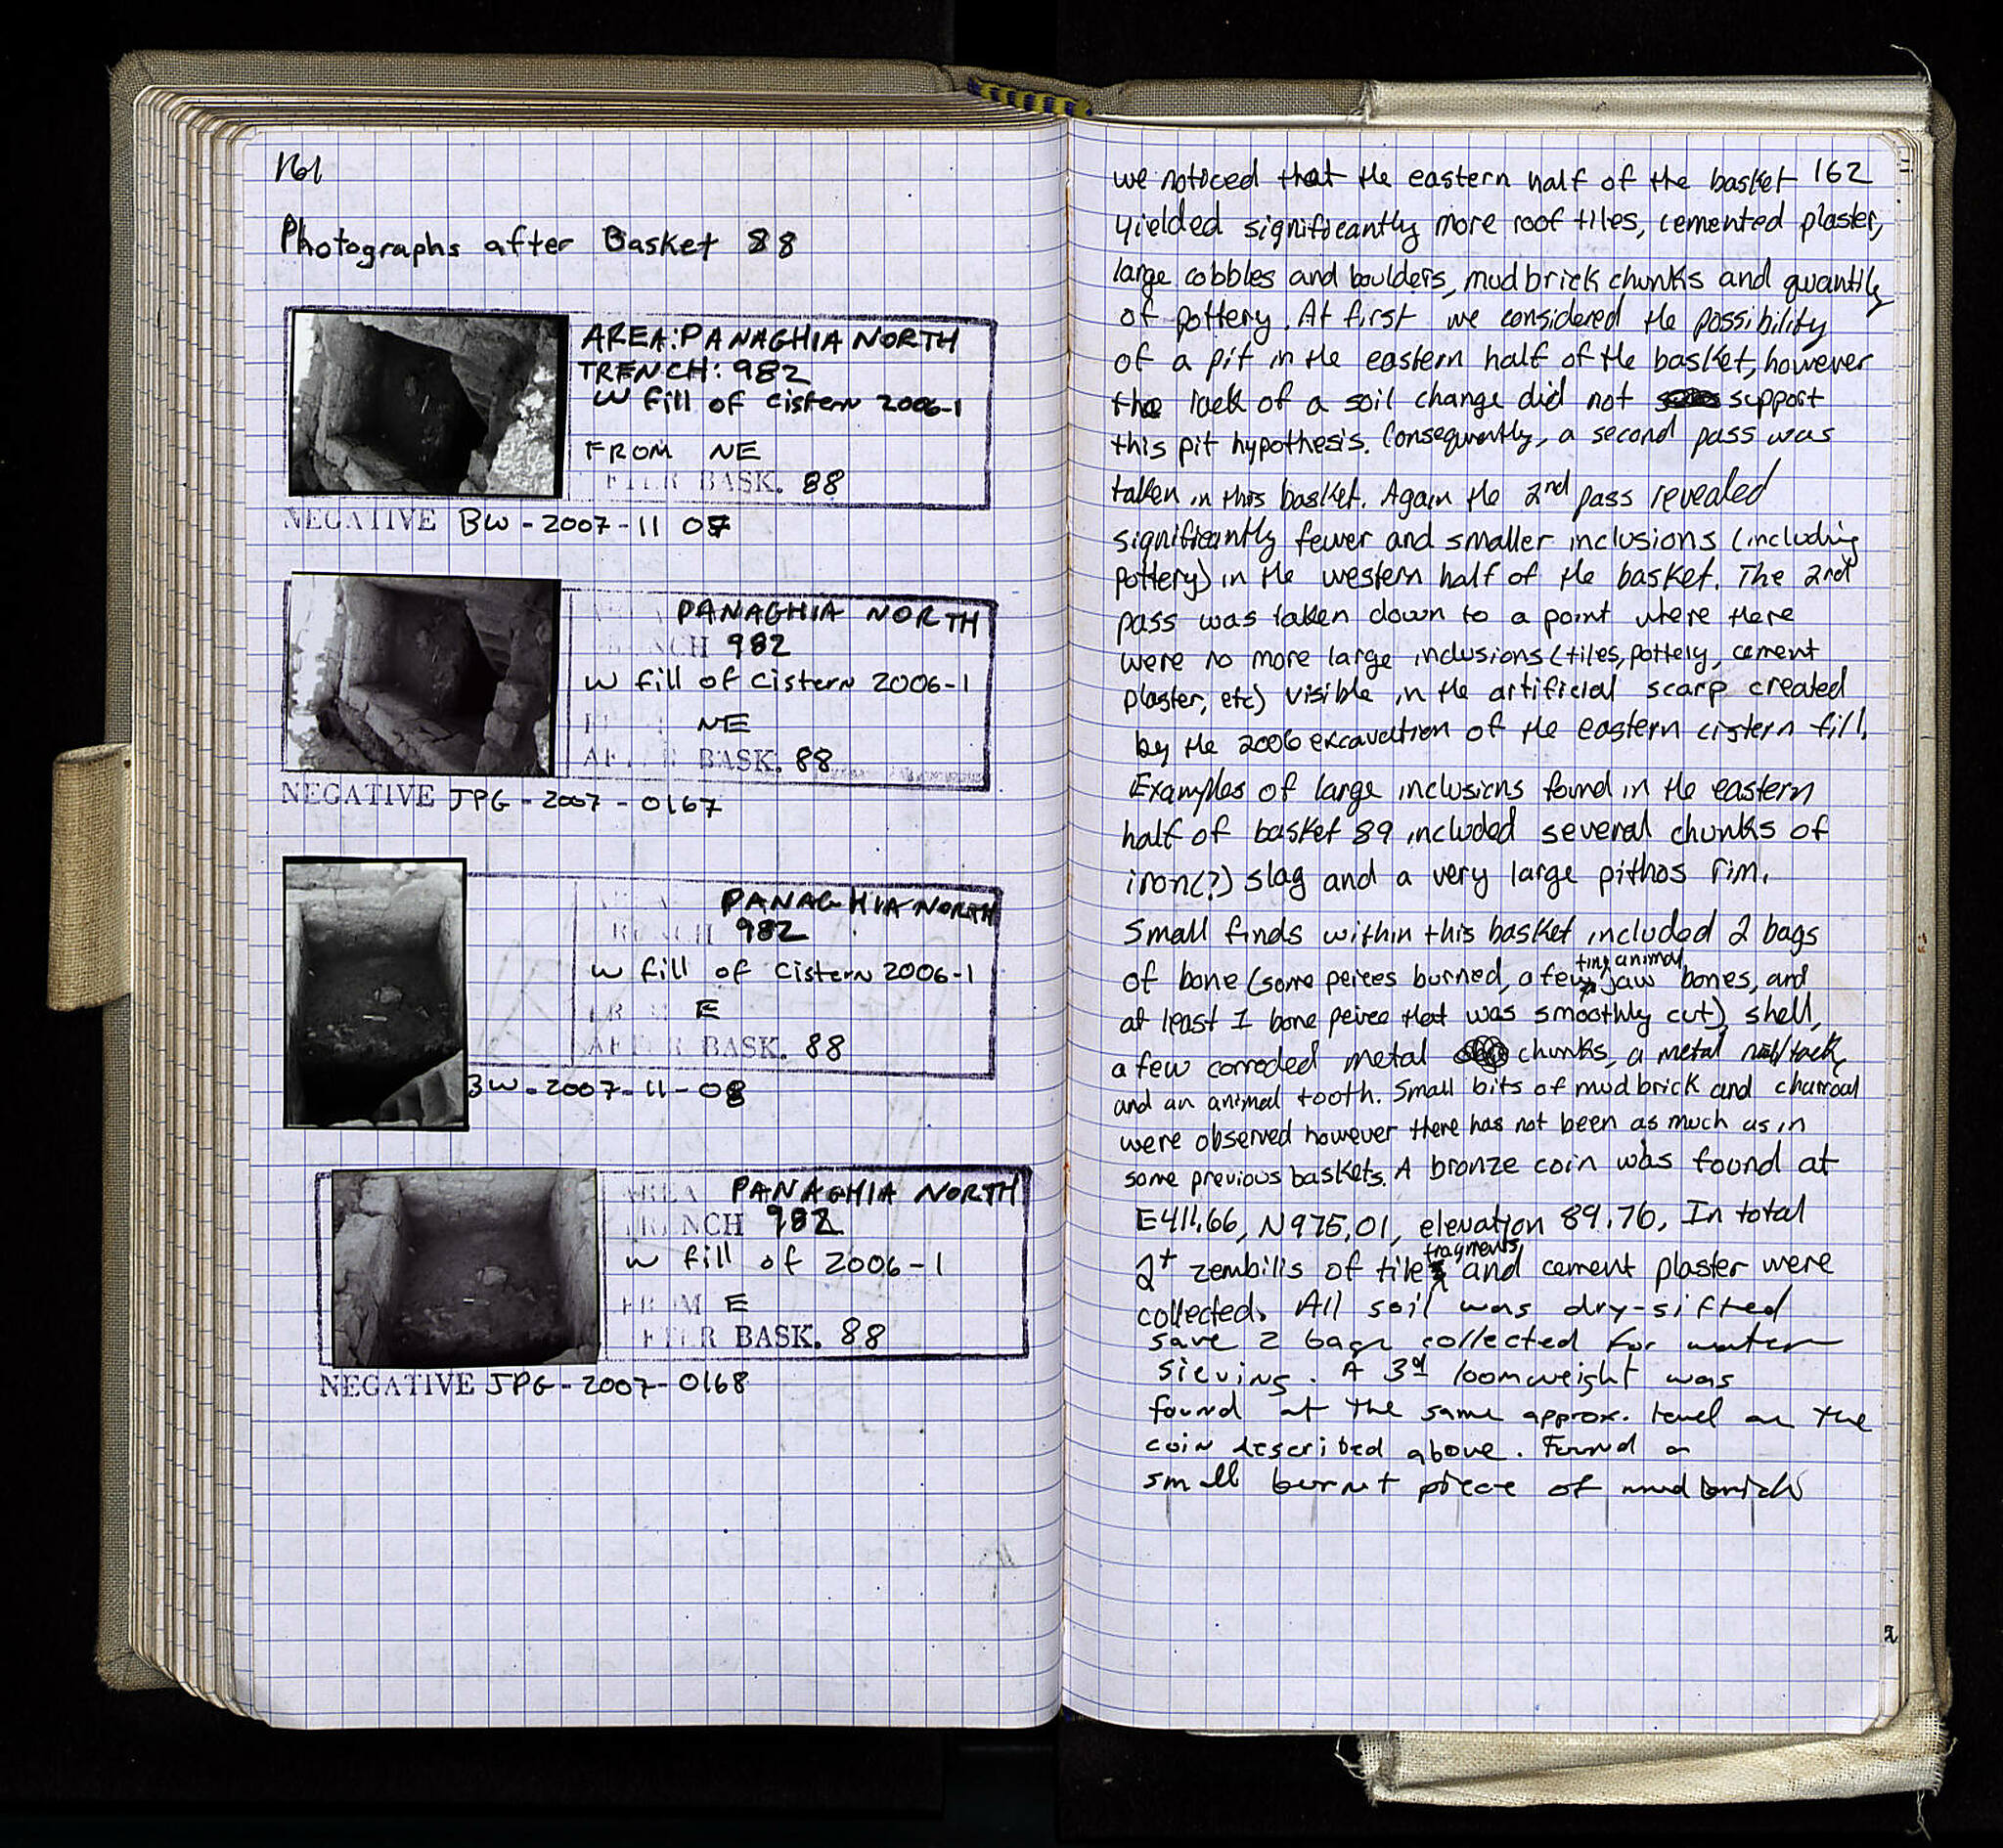 161
Photographs after Basket 88
AREA: PANAGHIA NORTH
TRENCH: 982
W fill of cistern 2006-1
FROM NE
FTER BASK. 88
NEGATIVE BW-2007-11 07
PANAGHIA NORTH
NCH 982
W fill of cistern 2006-1
NE
AFTER BASK. 88
NEGATIVE JPG-2007-0167
PANAGHIA NORTH
TRENCH 982
W fill of cistern 2006-1
FROM E
AFTER BASK. 88
BW-2007-11-08
AREA PANAGHIA NORTH
TRENCH 982
W fill of 2006-1
FROM E
FTER BASK. 88
NEGATIVE JPG-2007-0168
162
we noticed that the eastern half of the basket
yielded significantly more roof tiles, cemented plaster,
large cobbles and boulders, mudbrick chunks and quantity
of pottery. At first we considered the possibility
of a pit in the eastern half of the basket, however
the lack of a soil change did not support
this pit hypothesis. Consequently, a second pass was
taken in this basket. Again the 2nd pass revealed
significantly fewer and smaller inclusions (including
pottery) in the western half of the basket. The 2nd
pass was taken down to a point where there
were no more large inclusions (tiles, pottery, cement
plaster, etc) visible in the artificial scarp created
by the 2006 excavation of the eastern cistern fill.
Examples of large inclusions found in the eastern
half of basket 89 included several chunks of
iron(?) slag and a very large pithos rim.
Small finds within this basket included 2 bags
of bone (some peices burned, a few tiny animal jaw bones, and
at least 1 bone peice that was smoothly cut), shell,
a few corroded metal chunks, a metal nail/tack,
and an animal tooth. Small bits of mudbrick and charcoal
were observed however there has not been as much as in
some previous baskets. A bronze coin was found at
E411.66, N975.01, elevation 89.76. In total
2+ zembilis of tile fragments and cement plaster were
collected. All soil was dry-sifted
save 2 bags collected for water
sieving. A 3rd loomweight was
found at the same approx. level as the
coin described above. Found a
small burnt piece of mudbrick